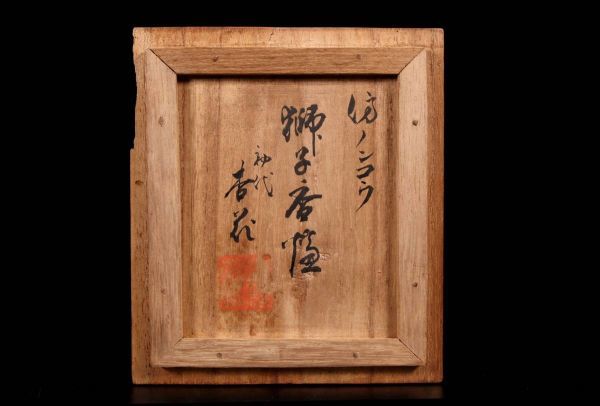 倣ノンコウ
獅子香爐
初代
杏花